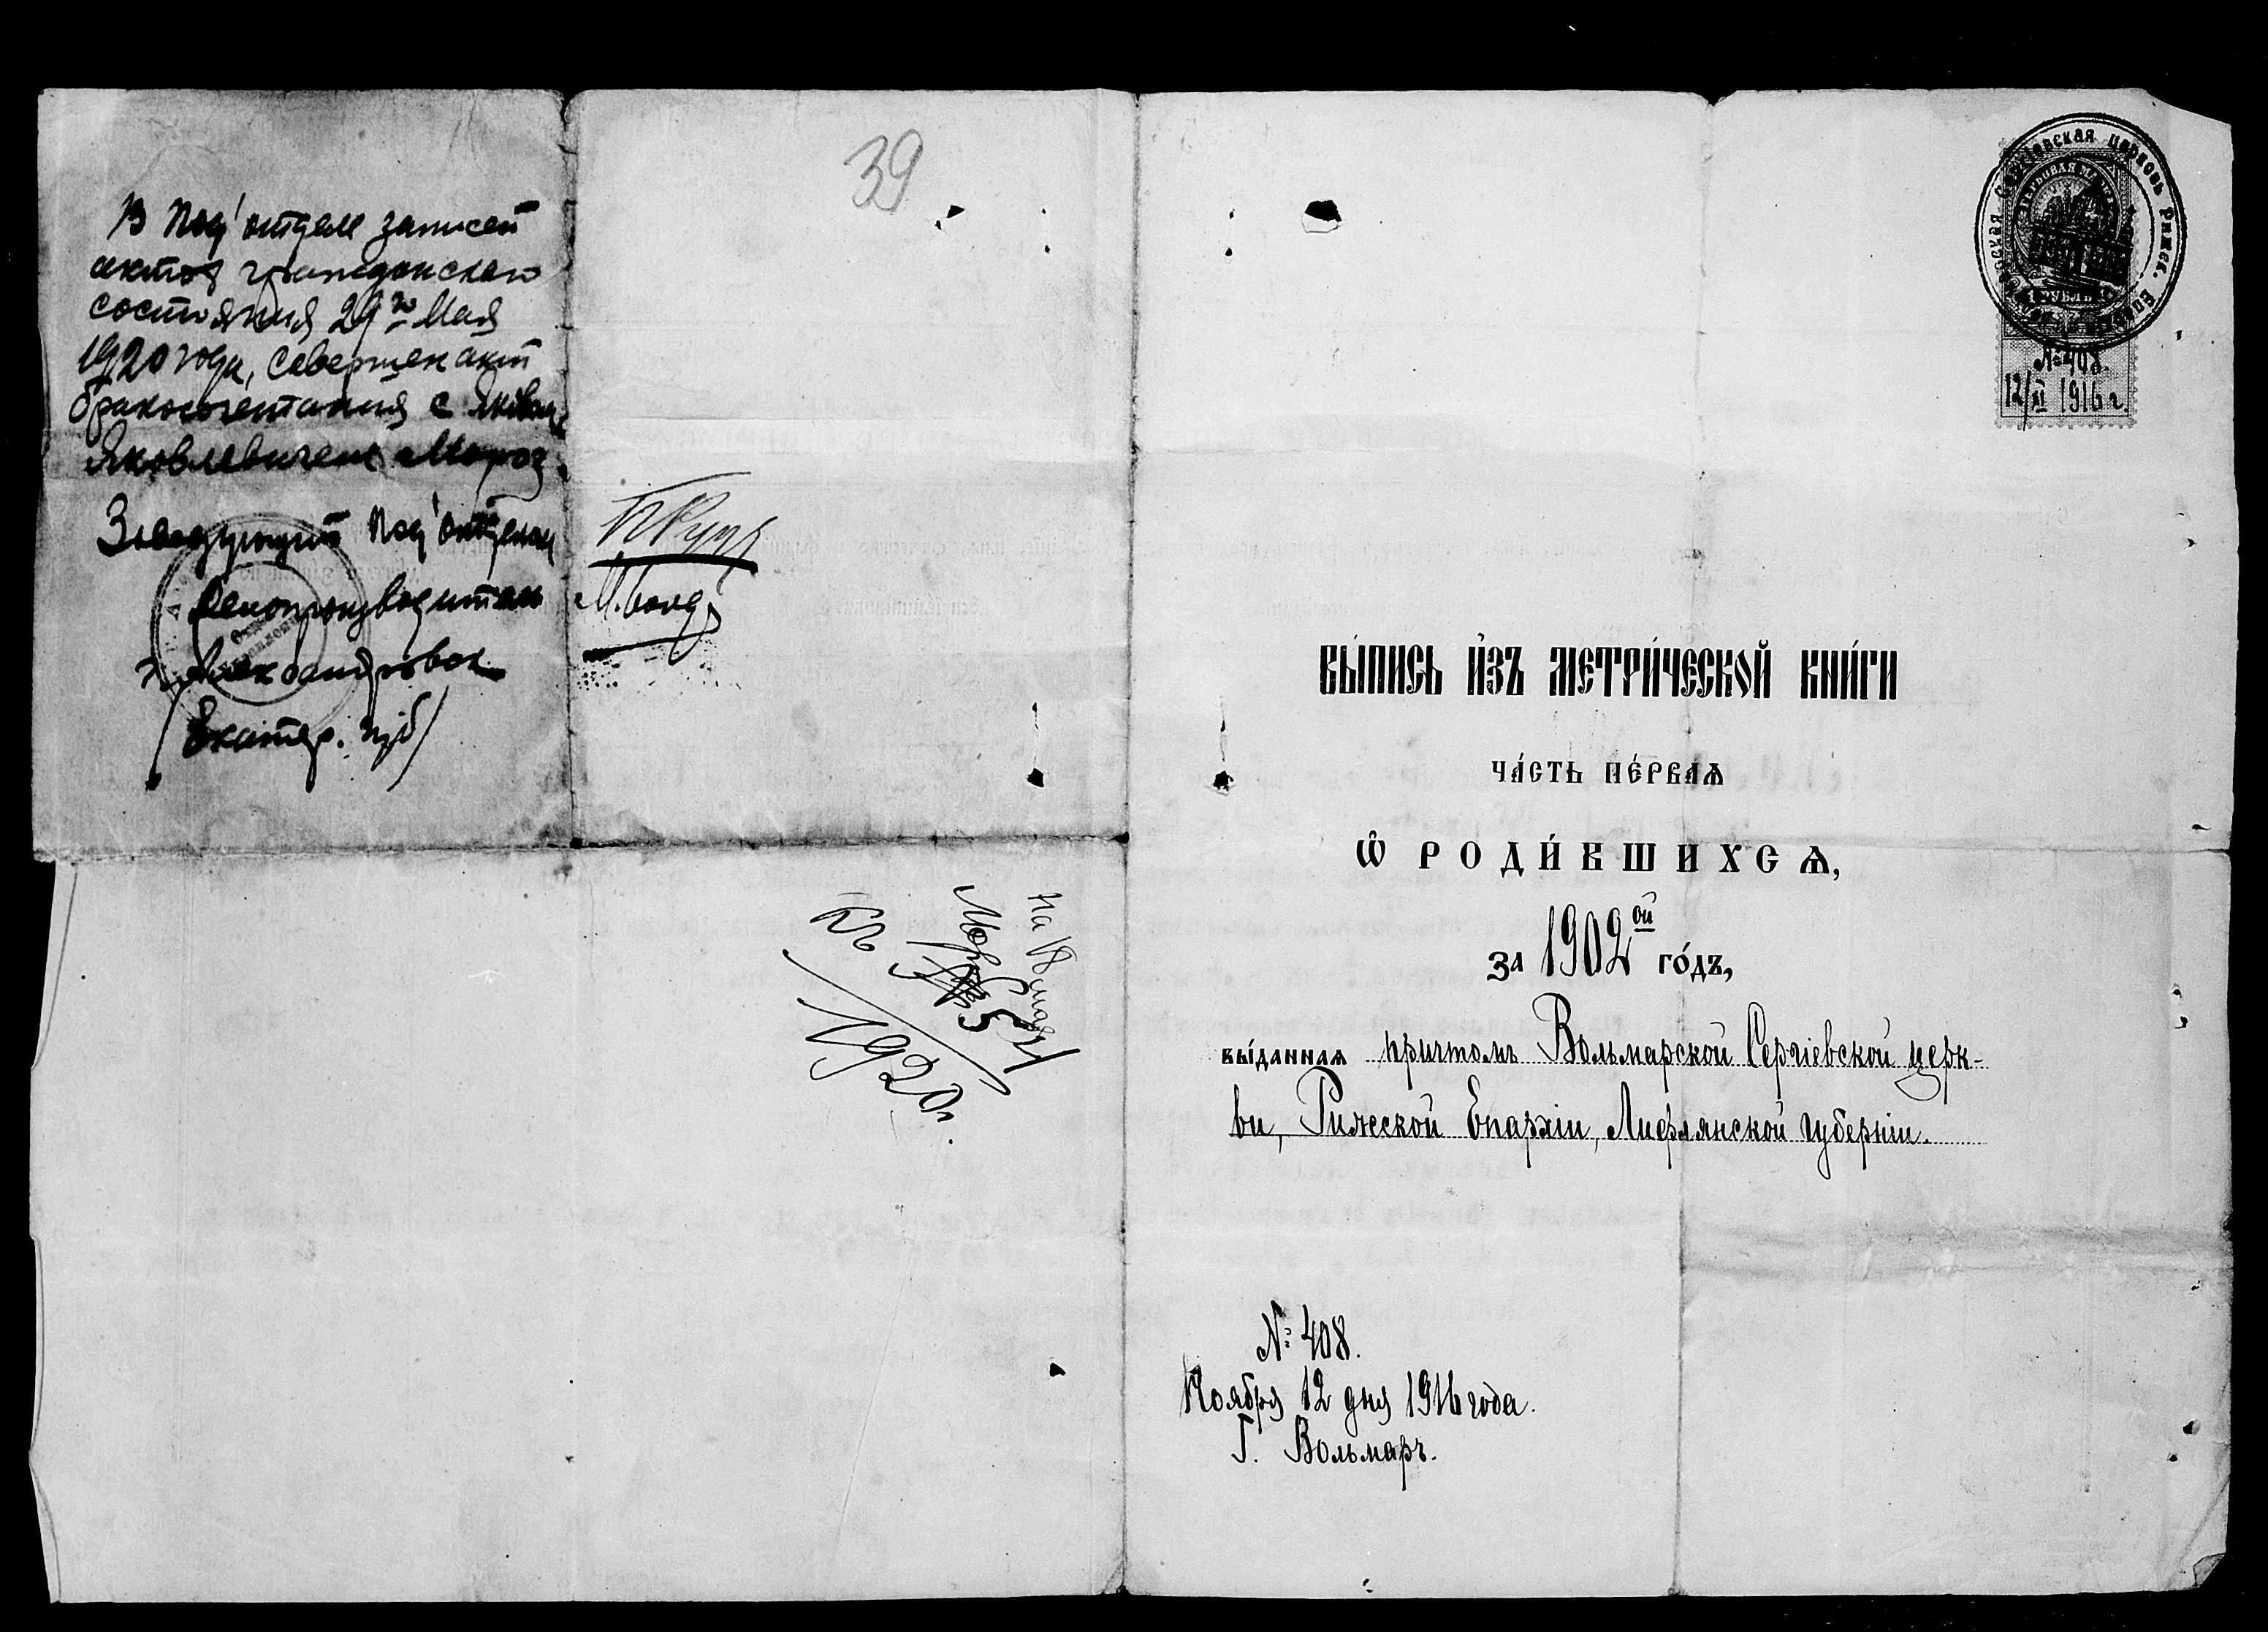 В Под'отделе записей
актов гражданского
состояния 29го Мая
1920 года, совершен акт
бракосочетания с Яковом
Яковлевичем Мороз
Заведующий Под'отделом
Делопроизводитель
г. Александровск
/Екатер. губ/
39
На
1920г.
ВЫ́ПИСЬ И҆ЗЪ МЕТРИ́ЧЕСКОЙ КНИ́ГИ
ЧА́СТЬ ПЕ́РВАѦ
Ѡ҆ РОДИ́ВШИХСѦ,
за 1902ой го́дъ,
вы́даннаѧ причтомъ Вольмарской Сергіевской церк-
ви, Рижской Епархіи, Лифлянской губерніи.
№ 408.
Ноября 12 дня 1916 года.
Г. Вольмаръ.
церковь Рижск. Епархіи
РУБЛЬ
№ 408.
12/XI 1916 г.